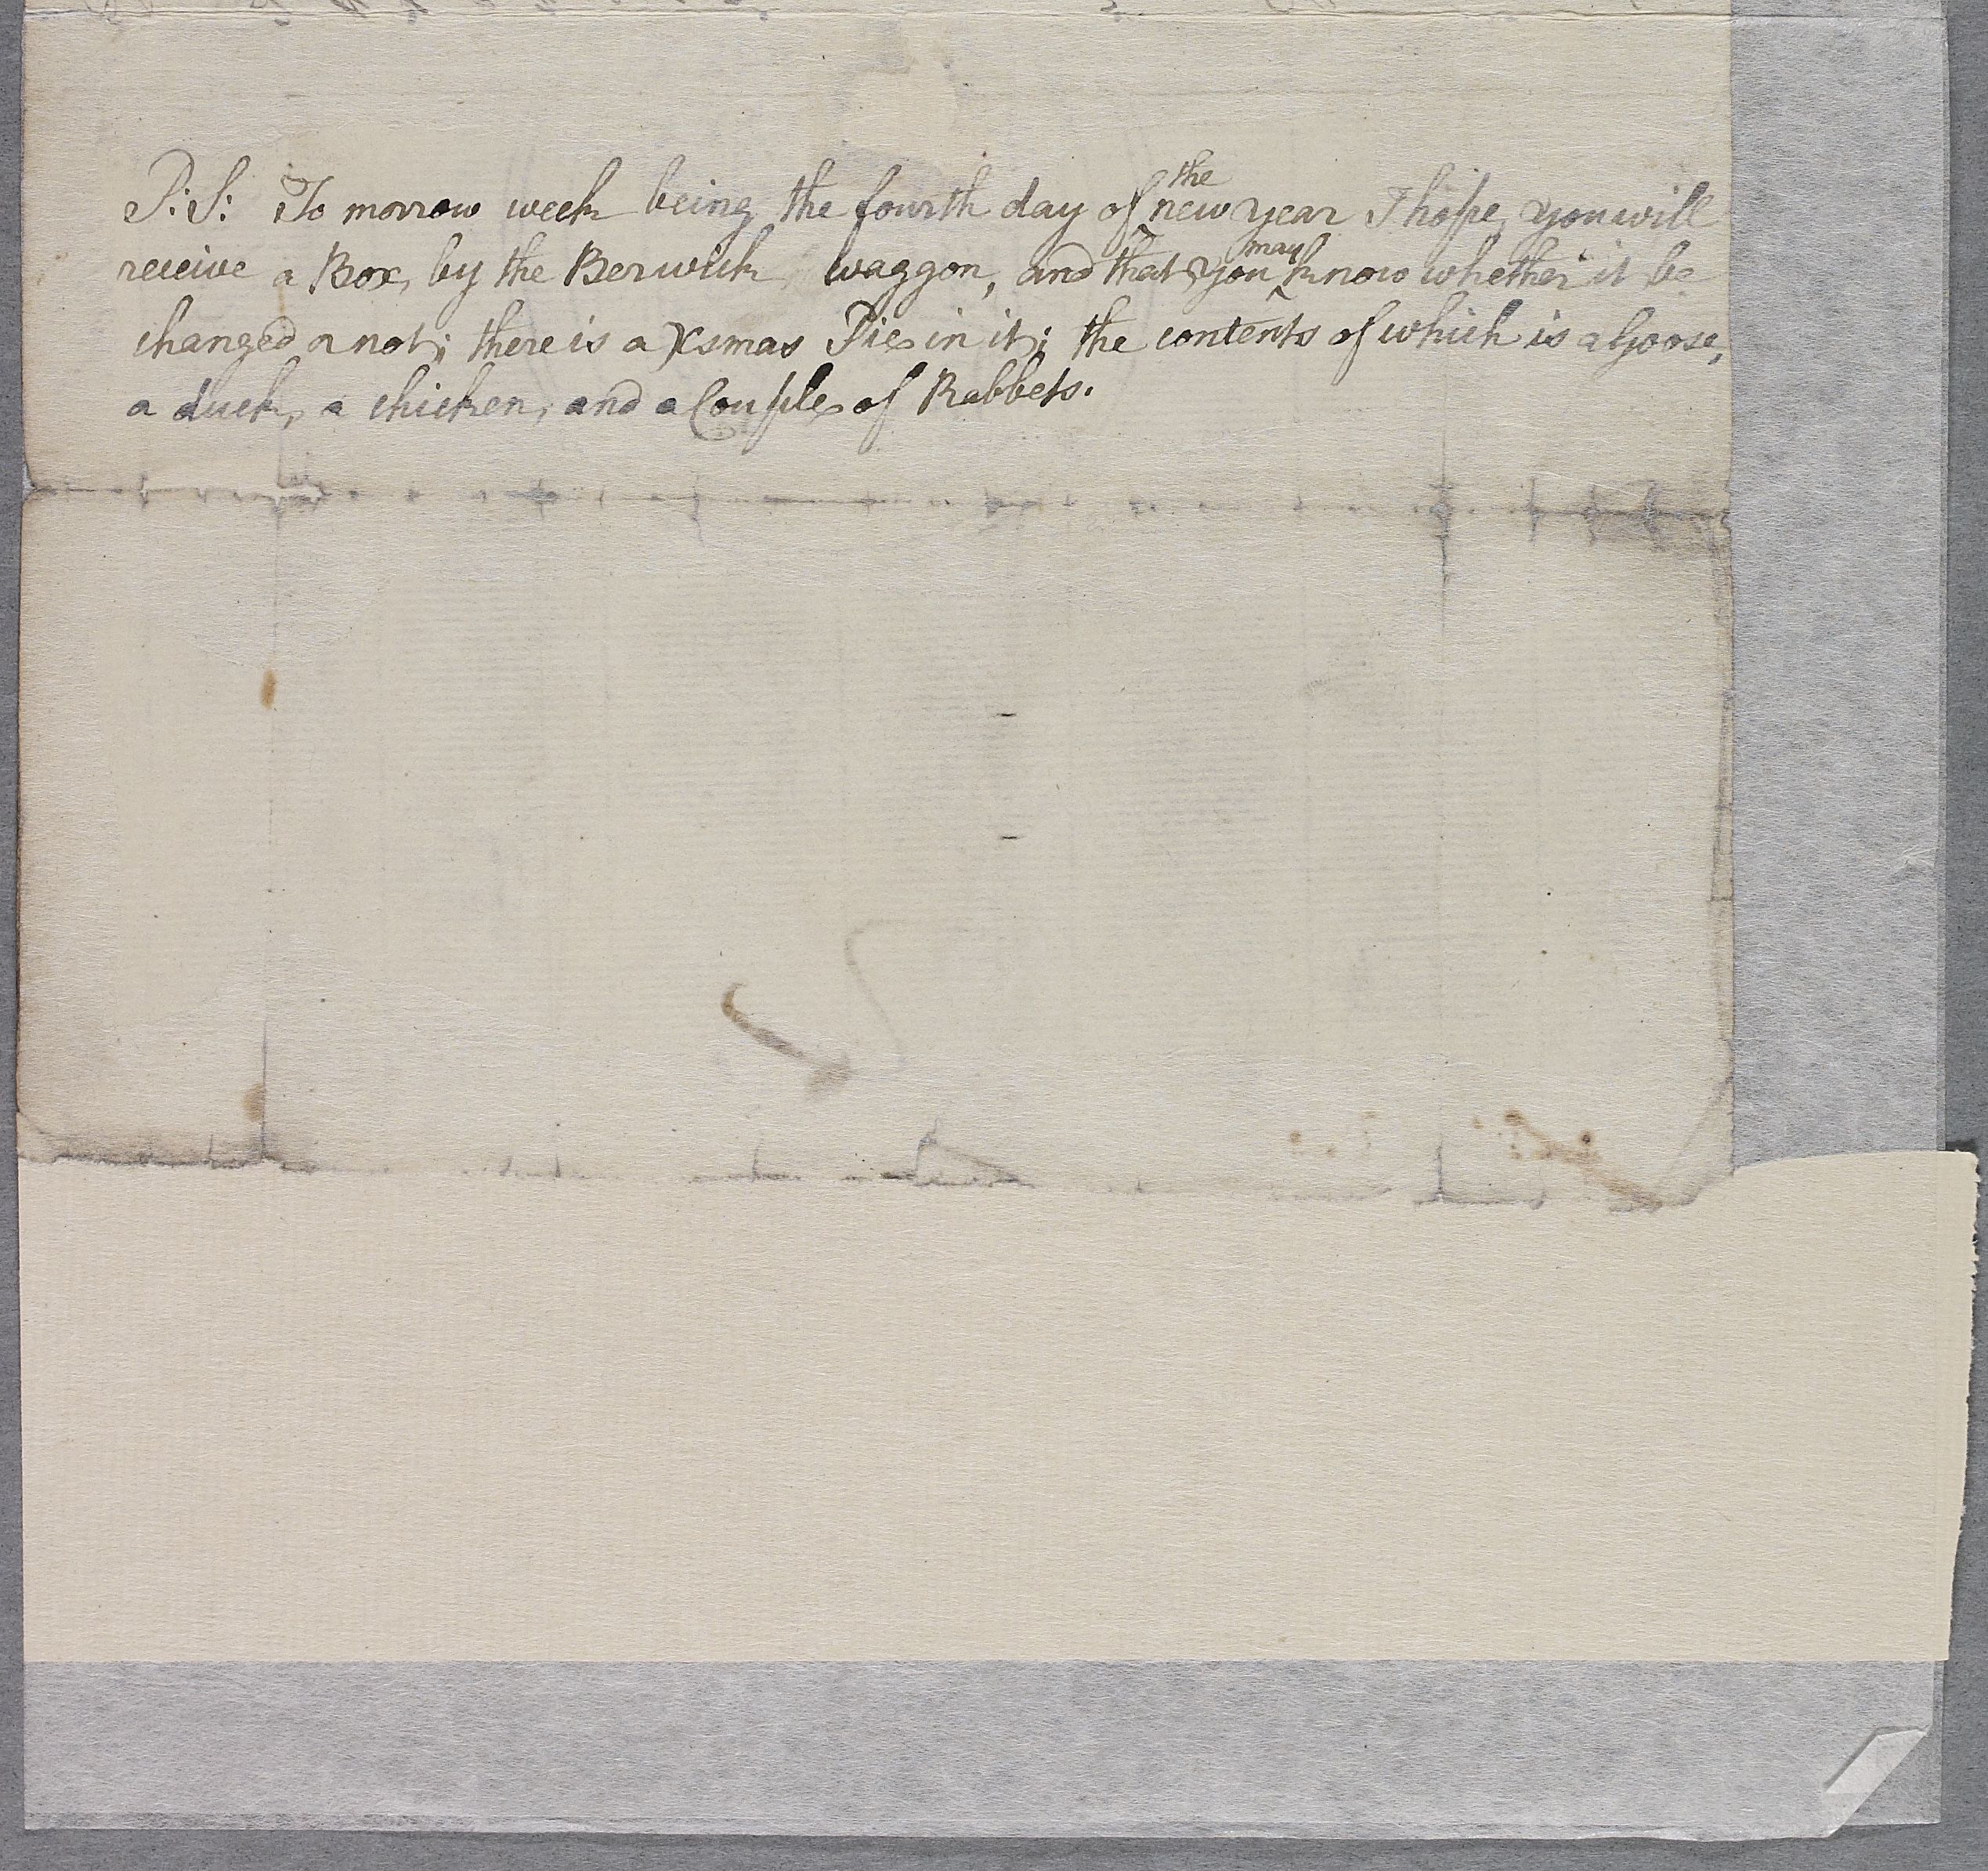 P:S: To morrow week being the fourth day of the new year I hope you will
receive a Box, by the Berwick waggon, and that you may know whether it be
changed or not; there is a Xsmas Pie in it; the contents of which is a Goose,
a duck, a chicken, and a Couple of Rabbets.